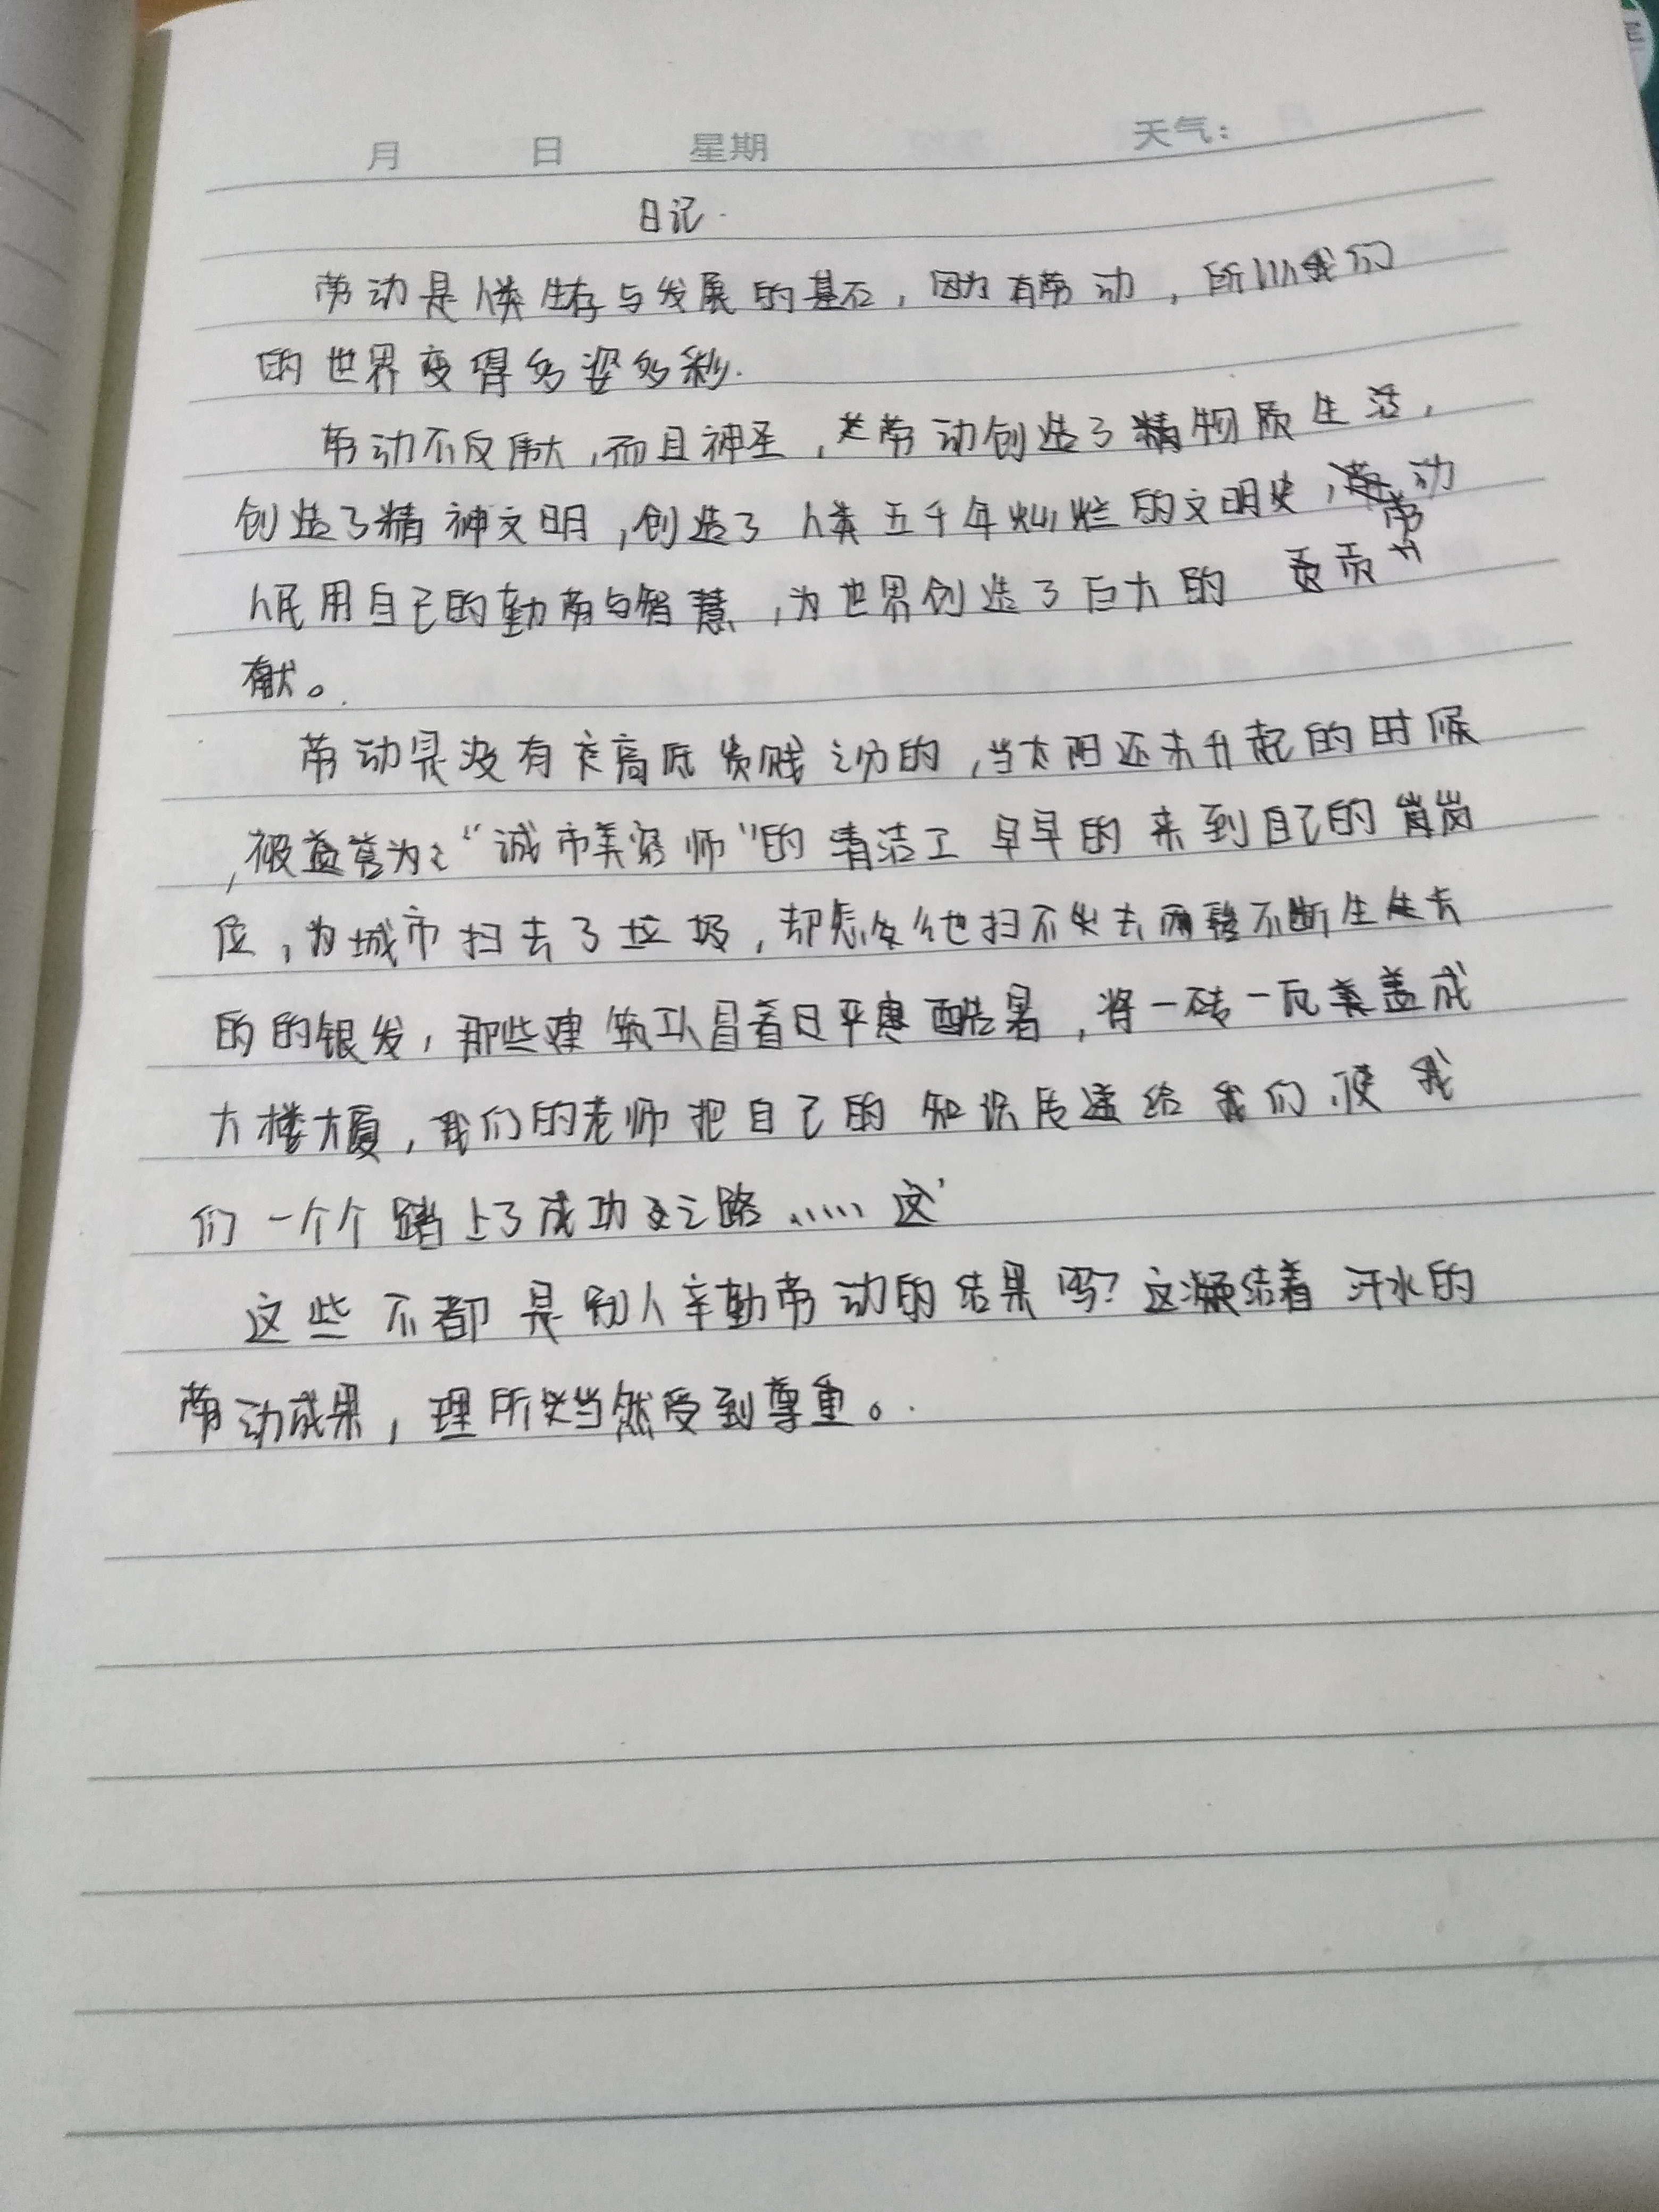 月 日 星期 天气：
日记
劳动是人类生存与发展的基石，因为有劳动，所以我们
的世界变得多姿多彩.
劳动不仅伟大，而且神圣，劳动创造了物质生活，
创造了精神文明，创造了人类五千年灿烂的文明史，劳动
人民用自己的勤劳与智慧，为世界创造了巨大的贡
献。
劳动是没有高低贵贱之分的，当太阳还未升起的时候
，被誉为"诚市美容师"的清洁工早早的来到自己的岗
位，为城市扫去了垃圾，却怎么也扫不去两鬓不断生
的的银发，那些建筑工人冒着严寒酷暑，将一砖一瓦盖成
大楼大厦，我们的老师把自己的知识传递给我们，使我
们一个个踏上了成功之路……这
这些不都是别人辛勤劳动的结果吗？这凝结着汗水的
劳动成果，理所当然受到尊重。